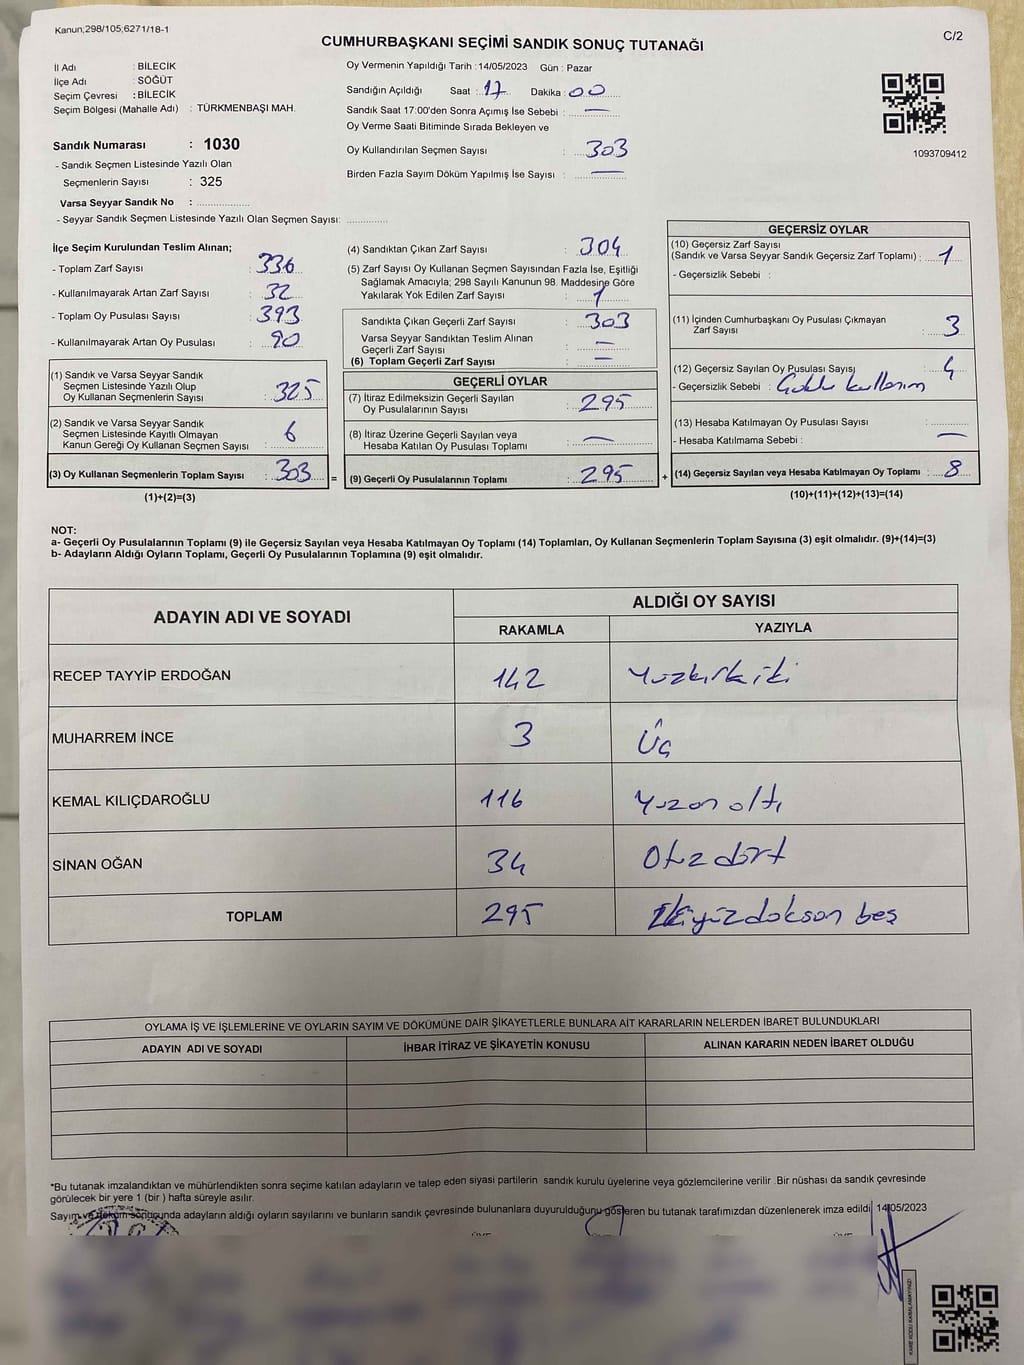 Kanun;298/105;6271/18-1
C/2
CUMHURBAŞKANI SEÇİMİ SANDIK SONUÇ TUTANAĞI
İl Adı : BİLECİK
İlçe Adı : SÖĞÜT
Seçim Çevresi : BİLECİK
Seçim Bölgesi (Mahalle Adı) : TÜRKMENBAŞI MAH.
Sandık Numarası : 1030
- Sandık Seçmen Listesinde Yazılı Olan
Seçmenlerin Sayısı : 325
Varsa Seyyar Sandık No : ...............
- Seyyar Sandık Seçmen Listesinde Yazılı Olan Seçmen Sayısı: ..............
Oy Vermenin Yapıldığı Tarih : 14/05/2023 Gün : Pazar
Sandığın Açıldığı Saat : 17 Dakika : 00
Sandık Saat 17:00'den Sonra Açımış İse Sebebi : —
Oy Verme Saati Bitiminde Sırada Bekleyen ve
Oy Kullandırılan Seçmen Sayısı : 303
Birden Fazla Sayım Döküm Yapılmış İse Sayısı : —
1093709412
İlçe Seçim Kurulundan Teslim Alınan;
- Toplam Zarf Sayısı : 336
- Kullanılmayarak Artan Zarf Sayısı : 32
- Toplam Oy Pusulası Sayısı : 393
- Kullanılmayarak Artan Oy Pusulası : 90
(1) Sandık ve Varsa Seyyar Sandık
Seçmen Listesinde Yazılı Olup
Oy Kullanan Seçmenlerin Sayısı : 325
(2) Sandık ve Varsa Seyyar Sandık
Seçmen Listesinde Kayıtlı Olmayan
Kanun Gereği Oy Kullanan Seçmen Sayısı : 6
(3) Oy Kullanan Seçmenlerin Toplam Sayısı : 303
(1)+(2)=(3)
(4) Sandıktan Çıkan Zarf Sayısı : 304
(5) Zarf Sayısı Oy Kullanan Seçmen Sayısından Fazla İse, Eşitliği
Sağlamak Amacıyla; 298 Sayılı Kanunun 98. Maddesine Göre
Yakılarak Yok Edilen Zarf Sayısı : 1
Sandıkta Çıkan Geçerli Zarf Sayısı : 303
Varsa Seyyar Sandıktan Teslim Alınan
Geçerli Zarf Sayısı : —
(6) Toplam Geçerli Zarf Sayısı : —
GEÇERLİ OYLAR
(7) İtiraz Edilmeksizin Geçerli Sayılan
Oy Pusulalarının Sayısı : 295
(8) İtiraz Üzerine Geçerli Sayılan veya
Hesaba Katılan Oy Pusulası Toplamı : —
= (9) Geçerli Oy Pusulalarının Toplamı : 295
GEÇERSİZ OYLAR
(10) Geçersiz Zarf Sayısı
(Sandık ve Varsa Seyyar Sandık Geçersiz Zarf Toplamı) : 1
- Geçersizlik Sebebi :
(11) İçinden Cumhurbaşkanı Oy Pusulası Çıkmayan
Zarf Sayısı : 3
(12) Geçersiz Sayılan Oy Pusulası Sayısı : 4
- Geçersizlik Sebebi : Çoklu kullanım
(13) Hesaba Katılmayan Oy Pusulası Sayısı : ............
- Hesaba Katılmama Sebebi : —
+ (14) Geçersiz Sayılan veya Hesaba Katılmayan Oy Toplamı : 8
(10)+(11)+(12)+(13)=(14)
NOT:
a- Geçerli Oy Pusulalarının Toplamı (9) ile Geçersiz Sayılan veya Hesaba Katılmayan Oy Toplamı (14) Toplamları, Oy Kullanan Seçmenlerin Toplam Sayısına (3) eşit olmalıdır. (9)+(14)=(3)
b- Adayların Aldığı Oyların Toplamı, Geçerli Oy Pusulalarının Toplamına (9) eşit olmalıdır.
ADAYIN ADI VE SOYADI
ALDIĞI OY SAYISI
RAKAMLA YAZIYLA
RECEP TAYYİP ERDOĞAN 142 Yüzkırkiki
MUHARREM İNCE 3 Üç
KEMAL KILIÇDAROĞLU 116 Yüzon altı
SİNAN OĞAN 34 Otuz dört
TOPLAM 295 İkiyüzdoksan beş
OYLAMA İŞ VE İŞLEMLERİNE VE OYLARIN SAYIM VE DÖKÜMÜNE DAİR ŞİKAYETLERLE BUNLARA AİT KARARLARIN NELERDEN İBARET BULUNDUKLARI
ADAYIN ADI VE SOYADI İHBAR İTİRAZ VE ŞİKAYETİN KONUSU ALINAN KARARIN NEDEN İBARET OLDUĞU
*Bu tutanak imzalandıktan ve mühürlendikten sonra seçime katılan adayların ve talep eden siyasi partilerin sandık kurulu üyelerine veya gözlemcilerine verilir .Bir nüshası da sandık çevresinde
görülecek bir yere 1 (bir ) hafta süreyle asılır.
Sayım ve döküm sonucunda adayların aldığı oyların sayılarını ve bunların sandık çevresinde bulunanlara duyurulduğunu gösteren bu tutanak tarafımızdan düzenlenerek imza edildi 14/05/2023
KARE KODU KARALAMAYINIZ!